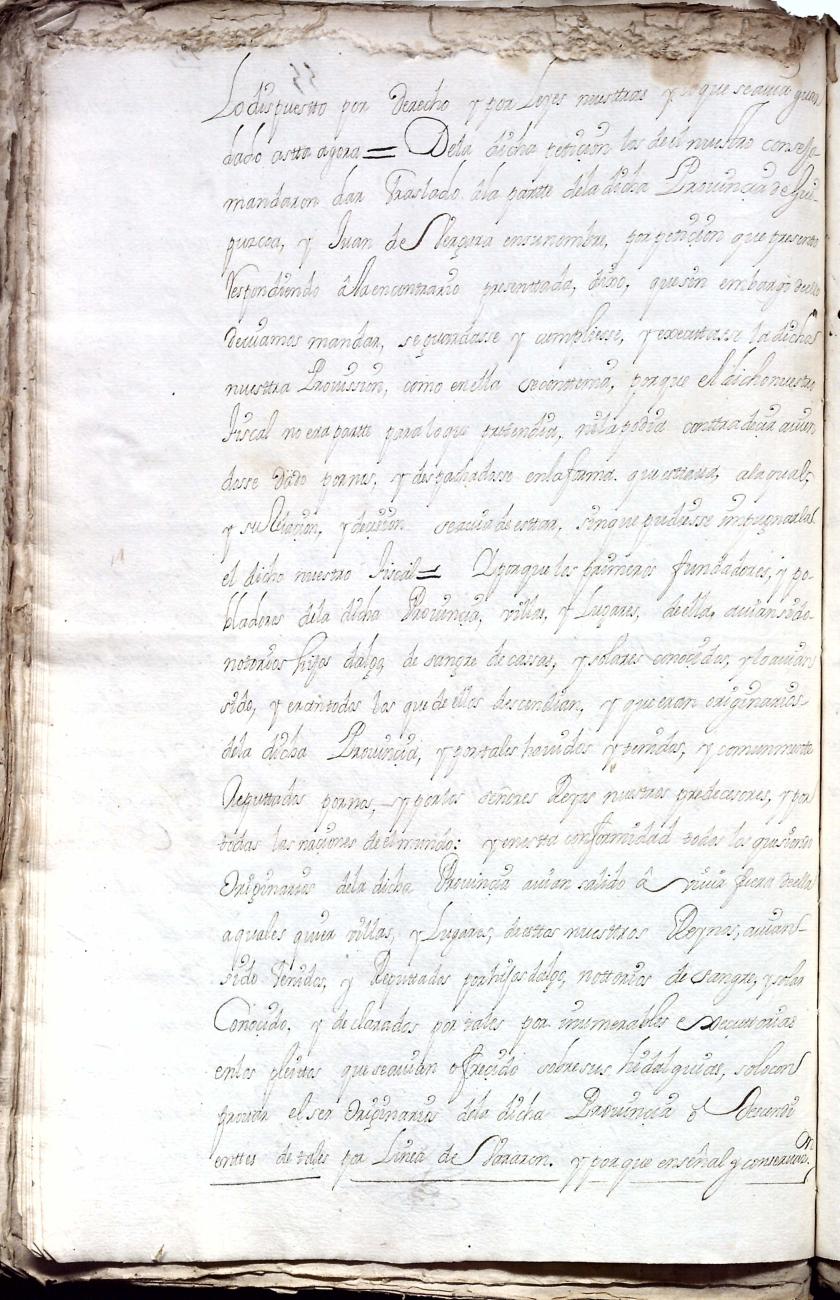 Lo dispuestto por derecho y por Leyes nuesttras y lo que se auia guar
dado astta agora = Dela dicha peticion los del nuestro conssejo
mandaron dar Traslado ala partte dela dicha Prouincia de Gui-
puzcoa, y Juan de Vergara en su nombre, por peticion que presento
Respondiendo âla en contrario presenttada, dixo, que sin embargo della
deuiamos mandar, se guardasse y cumpliesse, y executtasse la dicha
nuesttra Prouission, como en ella se contenia, porque el dicho nuestro
Fiscal no era partte para lo que pretendia, ni la podia conttradecir auien
dosse dado por nos, y despachadosse en la forma que esttaua, a la qual,
y su Vission, y decission se auia de esttar, sin que pudiesse impugnarlas
el dicho nuestro Fiscal = Y porque los primeros fundadores, y po-
bladores dela dicha Prouincia, villas, y Lugares, de ella, auian sido
notorios hijos dalgo, de sangre de cassas, y solares conocidos, y lo auian
sido, y eran todos los que de ellos descendian, y que eran originarios
dela dicha Prouincia, y por tales hauidos y tenidos, y comunmente
Reputtados por nos, y por los señores Reyes nuestros predecesores, y por
todas las naciones de el mundo: y en esta conformidad todos los que siendo
Originarios dela dicha Prouincia auian salido â viuir fuera della
a quales quier villas, y Lugares, de esttos nuesttros Reynos, auian
sido Tenidos, y Reputtados por hijos dalgo, nottorios de sangre, y solar
Conocido, y declarados por tales por innumerables executtorias
en los pleittos que se auian ofrecido sobre sus hidalguias, solo con
prouar el ser Originarios dela dicha Prouincia o Descendi
enttes de tales por Linea de Varon. y porque en señal y conseruacion